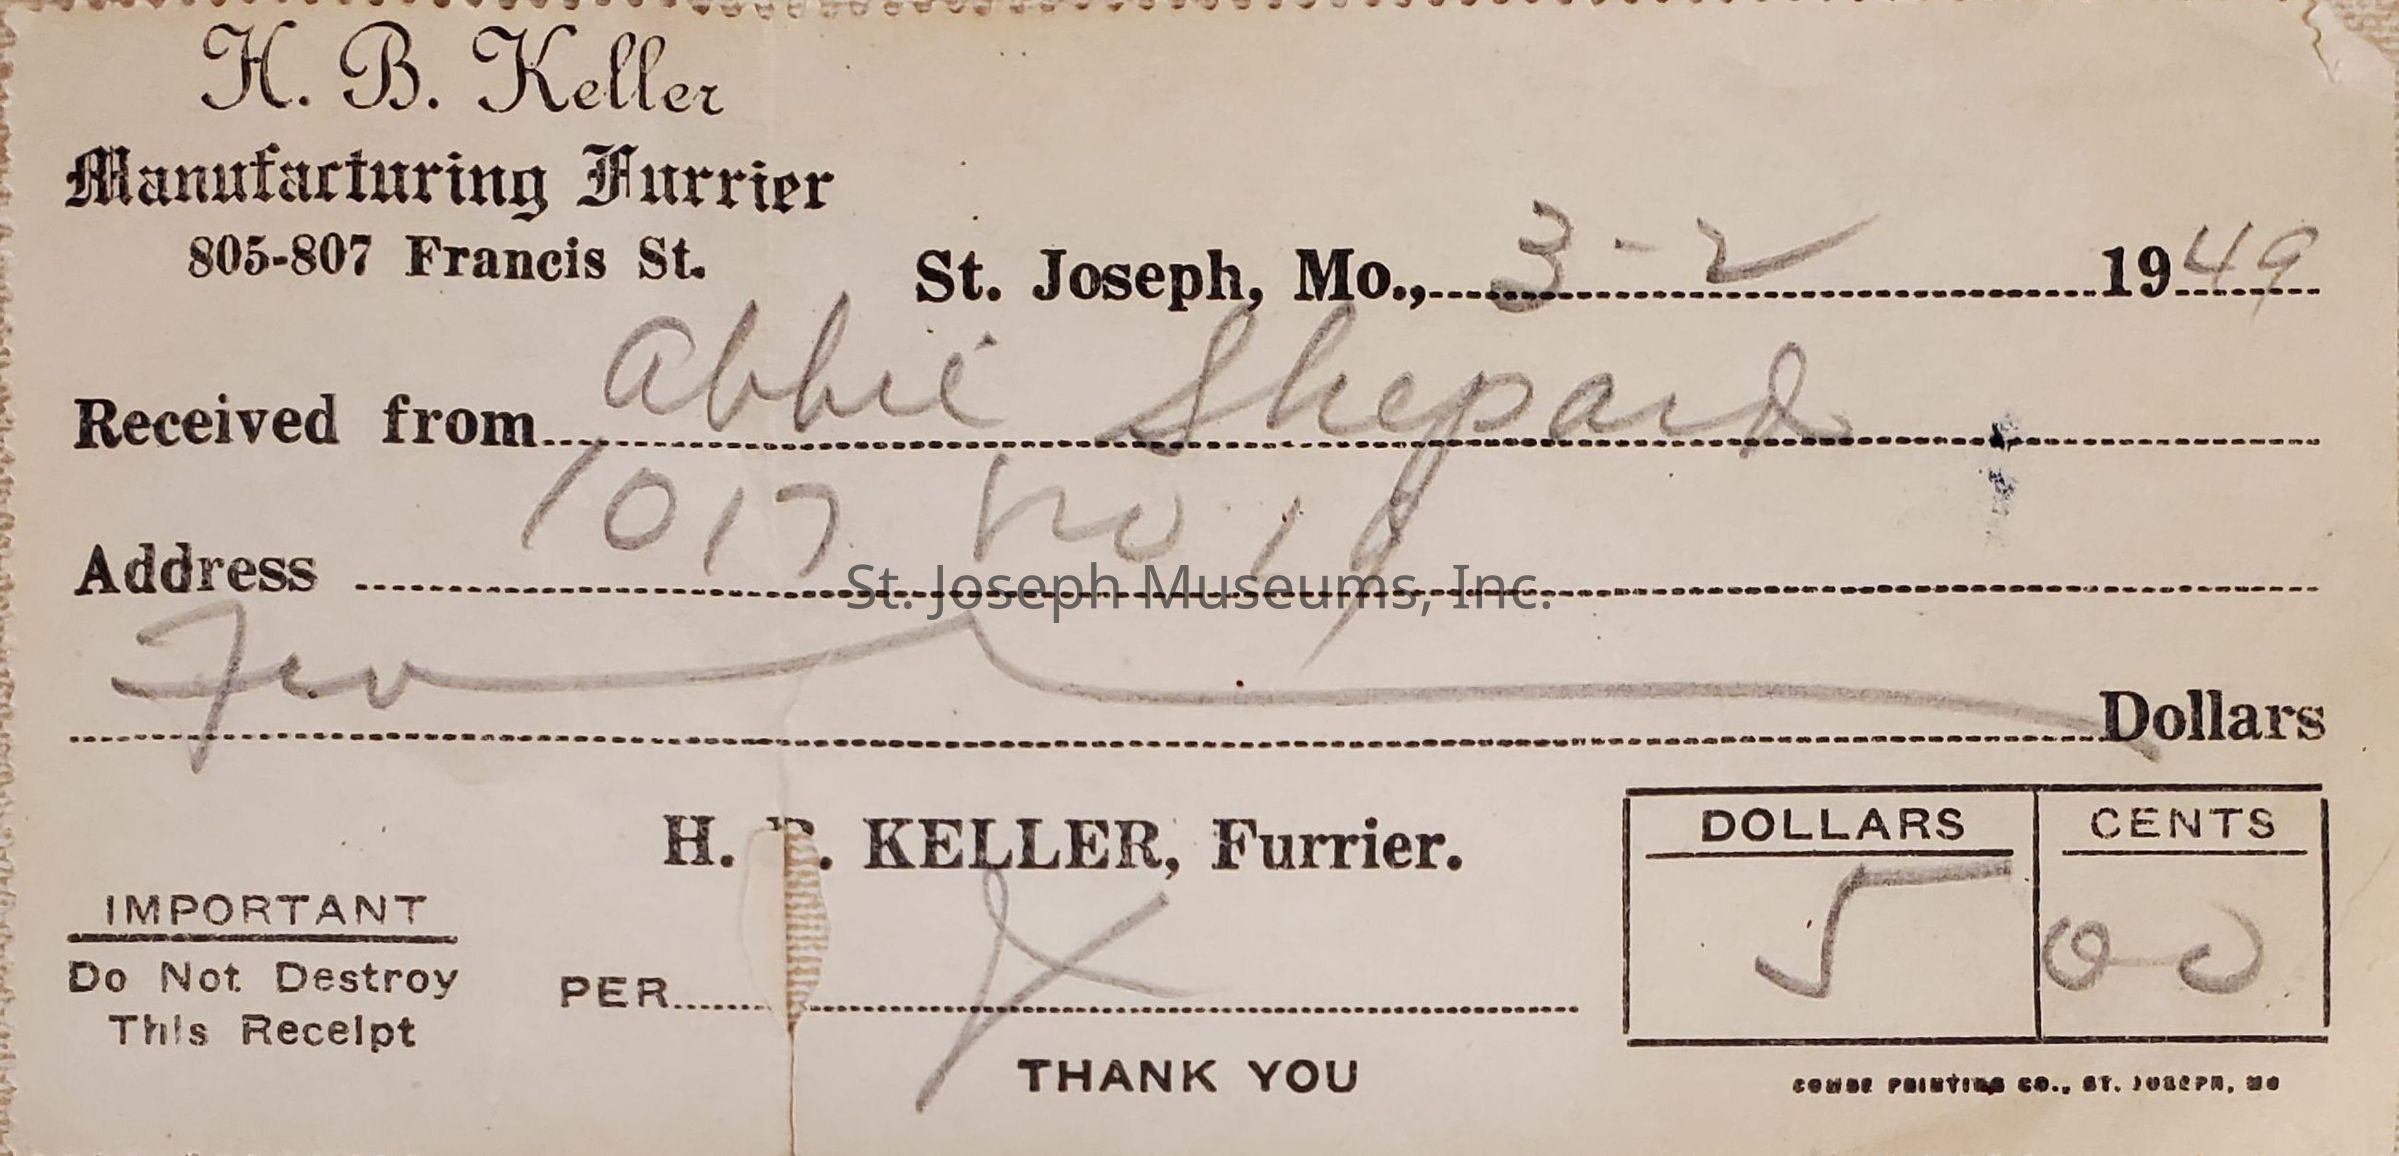 H. B. Keller
Manufacturing Furrier
805-807 Francis St.
St. Joseph, Mo., 3-2 1949
Received from Abbie Shepard
Address 1017 No 19
St. Joseph Museums, Inc.
Dollars
H. B. KELLER, Furrier.
DOLLARS CENTS
5 00
IMPORTANT
Do Not Destroy
This Receipt
PER
THANK YOU
PRINTING CO., ST. JOSEPH, MO